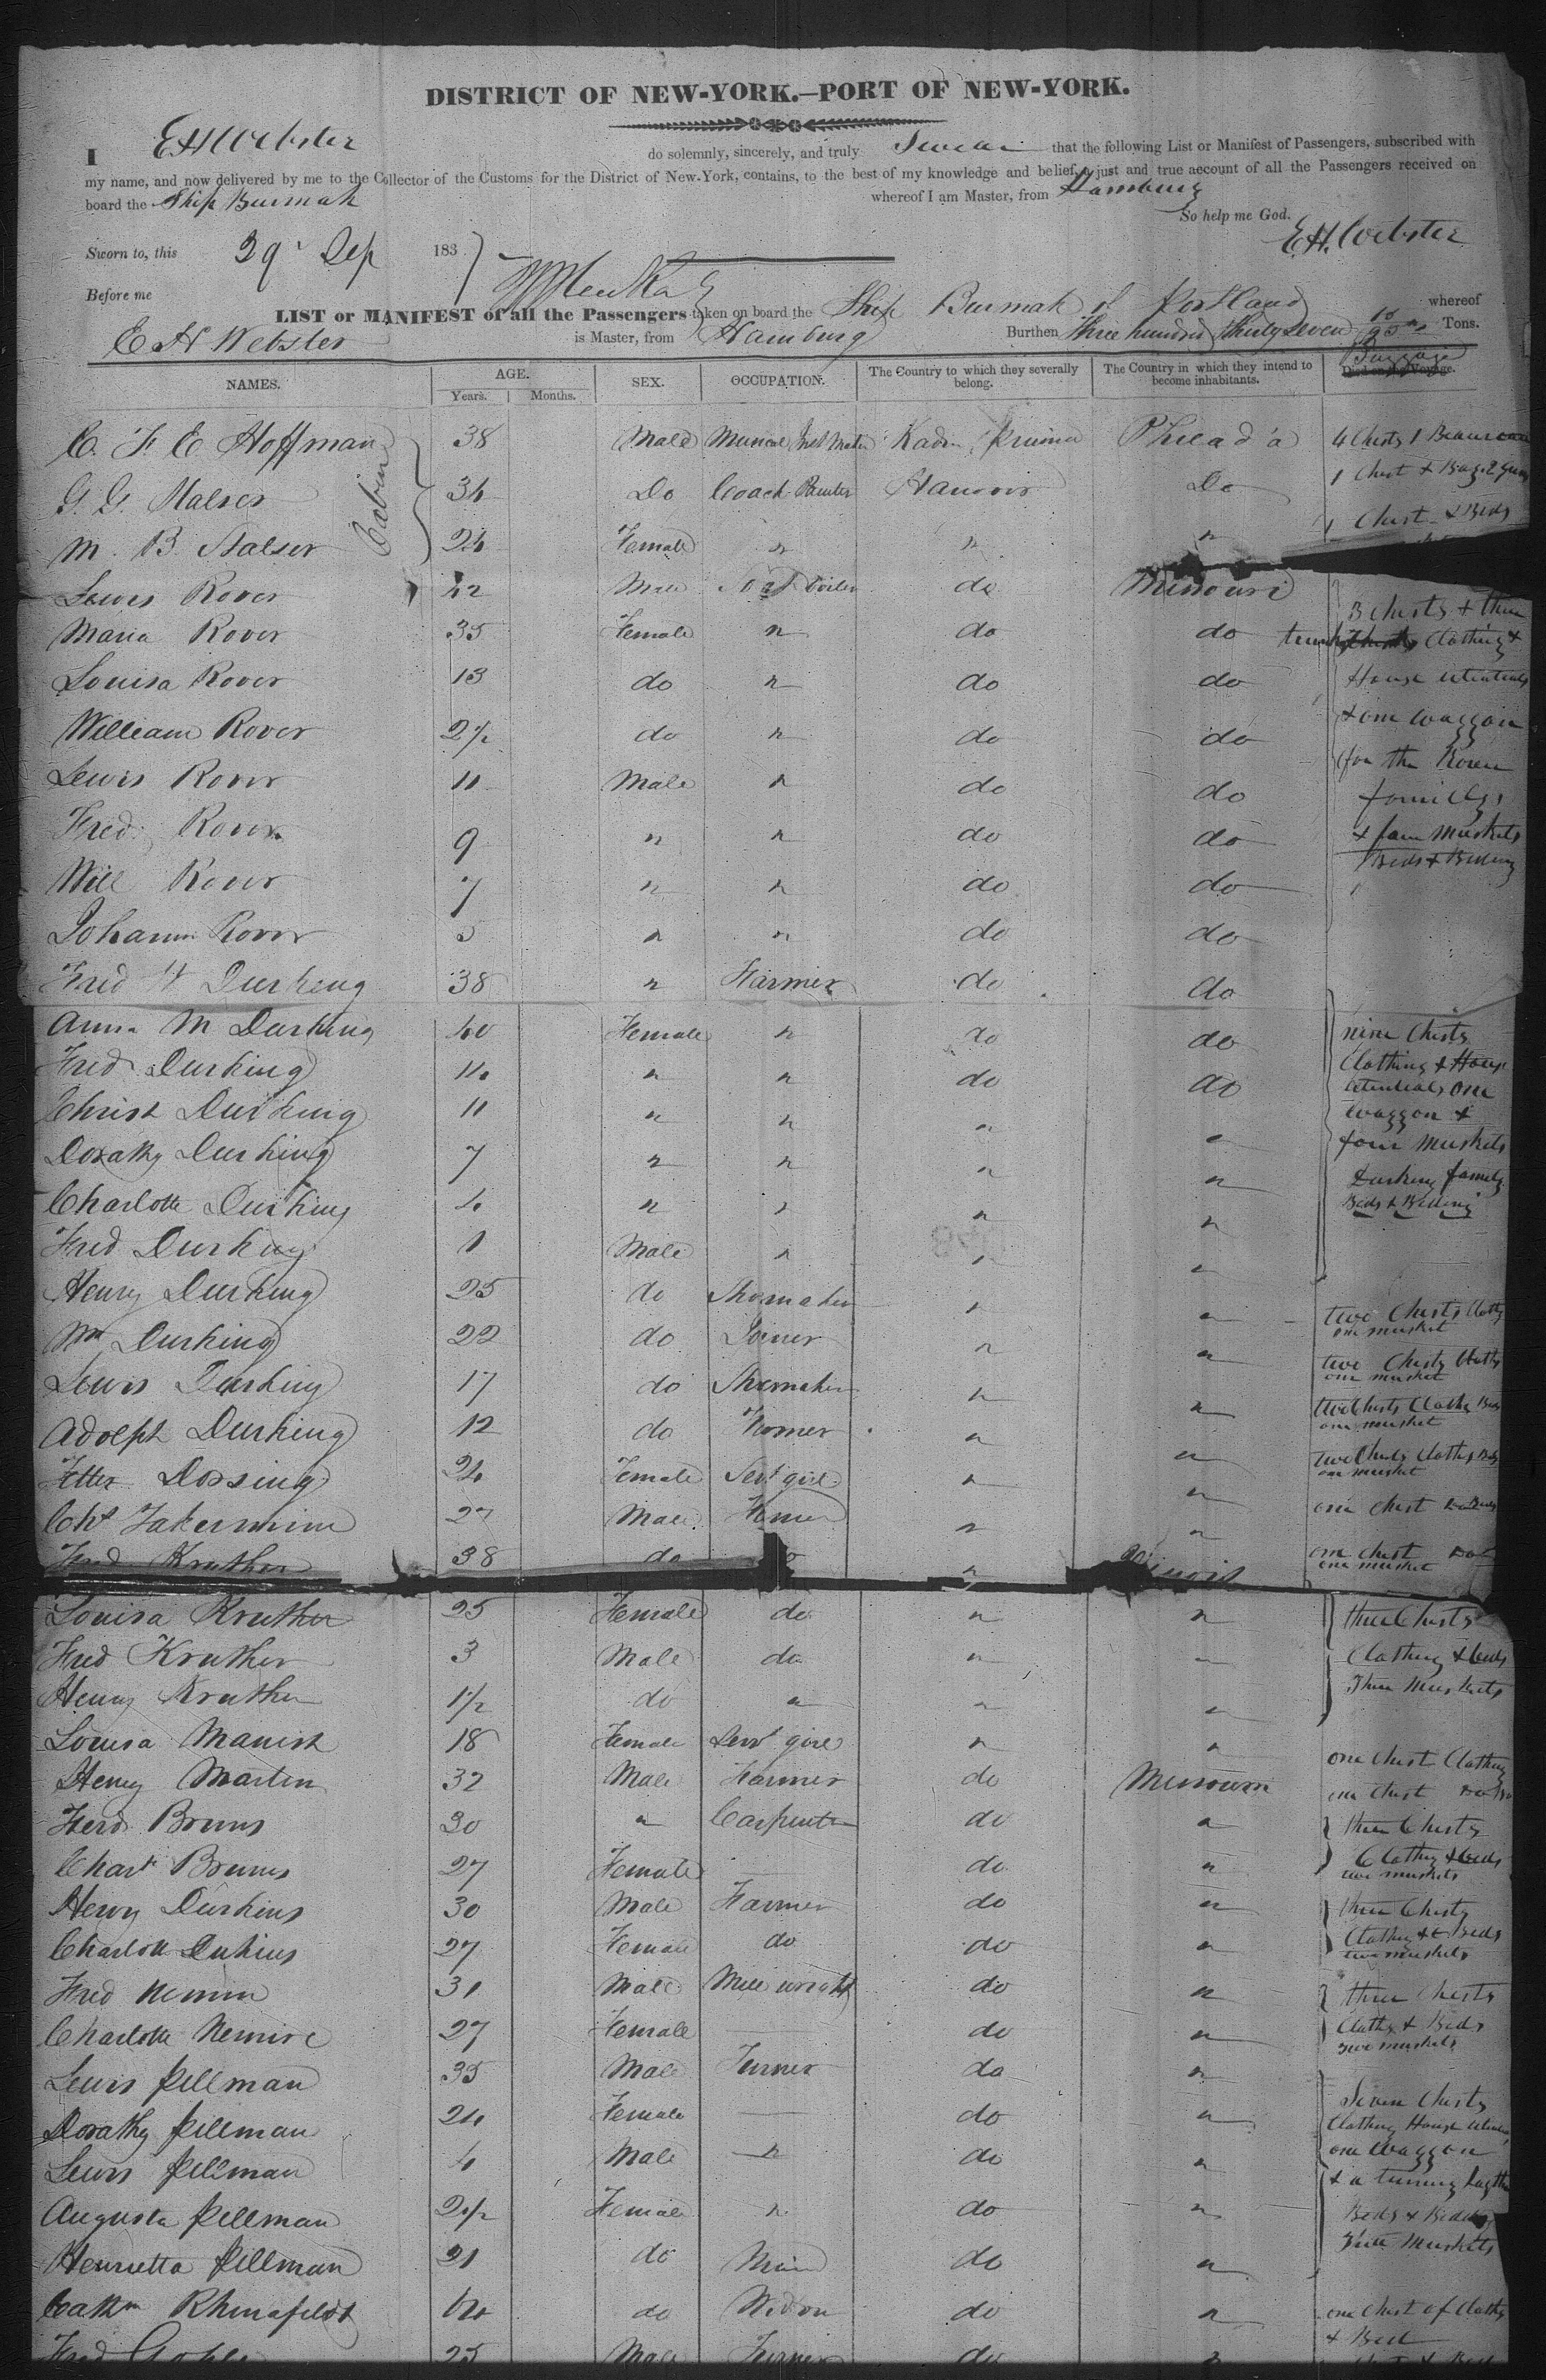 DISTRICT OF NEW-YORK.—PORT OF NEW-YORK.
I E H Webster do solemnly, sincerely, and truly Swear that the following List or Manifest of Passengers, subscribed with
my name, and now delivered by me to the Collector of the Customs for the District of New-York, contains, to the best of my knowledge and belief, a just and true account of all the Passengers received on
board the Ship Burmah whereof I am Master, from Hamburg
So help me God.
Sworn to, this 29 Sep 183 E.H. Webster
Before me
LIST or MANIFEST of all the Passengers taken on board the Ship Burmah of Portland whereof
E H Webster is Master, from Hamburg Burthen Three hundred thirty seven 10/95 Tons.
NAMES. AGE. Years. Months. SEX. OCCUPATION. The Country to which they severally belong. The Country in which they intend to become inhabitants. Died on the Voyage. Baggage
Cabin
C. F. E Hoffman 38 Male Philad'a 4 Chests 1
G. G. Halser 34 Do Coach Painter Hanover Do 1 Chest + Bag 2
M. B. Halser 24 Female " " " 1 Chest + Beds
Lewis Rover 42 Male Boiler do Missouri
Maria Rover 35 Female " do do 3 Chests + three
Louisa Rover 13 do " do do trunks Clothing +
William Rover 2½ do " do do House utentials
Lewis Rover 11 Male " do do + one waggon
Fred Rover 9 " " do do for the Rover
Will Rover 7 " " do do family
Johann Rover 5 " " do do + four muskets
Fred H Durking 38 " Farmer do do Beds + Bedding
Anna M Durking 40 Female " do do nine Chests
Fred Durking 14 " " do do Clothing + House
Christ Durking 11 " " " " utentials one
Dorathy Durking 7 " " " " waggon +
Charlotte Durking 4 " " " " four muskets
Fred Durking 1 Male " " " Durking family
Beds + Bedding
Henry Durking 25 do Shomaker " " two Chests Cloths
one musket
Wm Durking 22 do Joiner " " two Chests Cloths
one musket
Lewis Durking 17 do Shomaker " " two Chests Cloths Beds
one musket
Adolph Durking 12 do Farmer " " two Chests Cloths Beds
one musket
Dossing 24 Female Sert girl " " one Chest
27 Male " " one Chest
one musket
Fred Kruther 38 do "
Louisa Kruther 25 Female do " " three Chests
Fred Kruther 3 Male do " " Clothing + beds
Henry Kruther 1½ do " " " Three Muskets
Louisa Manish 18 Female Sevt girl " " one Chest Clothing
Henry Marten 32 Male Farmer do Missouri one Chest
Ferd Bruns 30 " Carpenter do " three Chests
Chart Bruns 27 Female do " Clothing + beds
two muskets
Henry Durkins 30 Male Farmer do " three Chests
Charlott Durkins 27 Female do do " Clothing + Beds
two muskets
Fred 31 Male Mill wright do " three Chests
Charlotte 27 Female — do " Cloths + Beds
two muskets
Lewis Pillman 35 Male Turner do " Seven Chests
Dorathy Pillman 24 Female — do " Clothing House
Lewis Pillman 4 Male " do " one Waggon
Augusta Pillman 2½ Female " do " + a turning
Henrietta Pillman 21 do do " Beds + Bedding
three Muskets
Cathn Rhinafeldt do Widow do " one Chest of Cloths
+ Bed
Fred 25 Male Turner do "